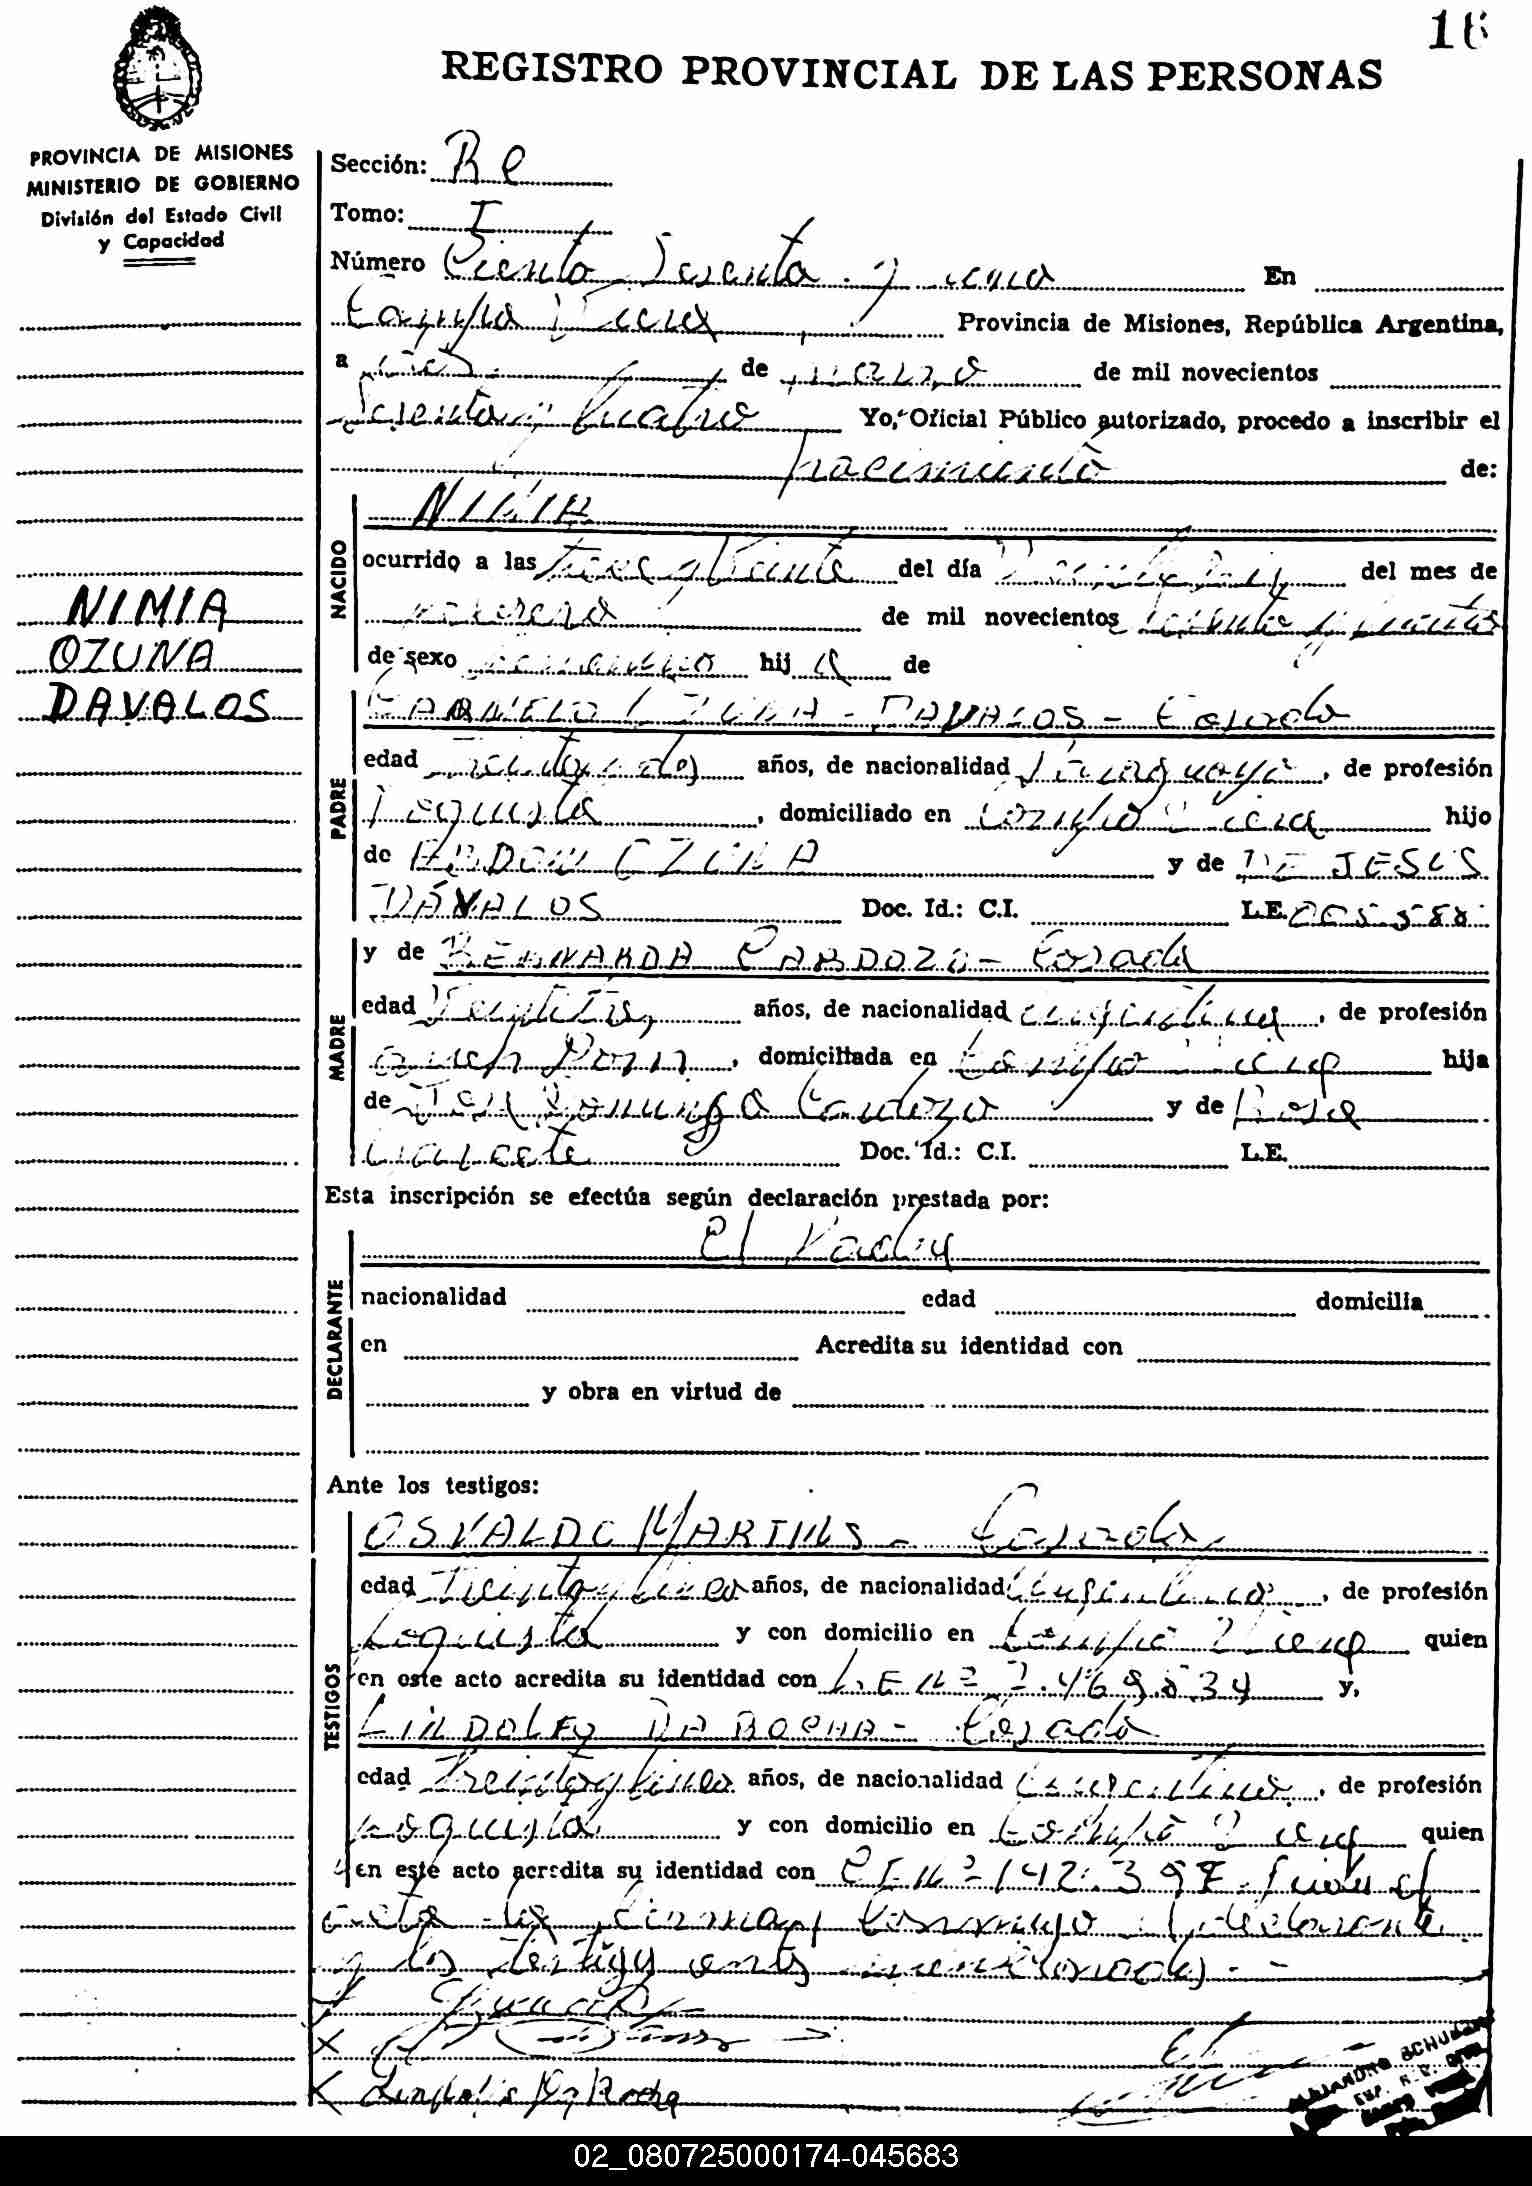 16
REGISTRO PROVINCIAL DE LAS PERSONAS
PROVINCIA DE MISIONES
MINISTERIO DE GOBIERNO
División del Estado Civil
y Capacidad
NIMIA
OZUNA
DAVALOS
Sección: Re
Tomo: I
Número Ciento Sesenta y uno En
Campo Viera Provincia de Misiones, República Argentina,
a de marzo de mil novecientos
Sesenta y Cuatro Yo, Oficial Público autorizado, procedo a inscribir el
nacimiento de:
NACIDO
NIMIA
ocurrido a las trece y veinte del día del mes de
de mil novecientos sesenta y cuatro
de sexo femenino hija de
PADRE
CARMELO OZUNA - DAVALOS - Casado
edad Treinta y dos años, de nacionalidad Paraguaya, de profesión
, domiciliado en Campo Viera hijo
de ABDON OZUNA y de DE JESUS
DÁVALOS Doc. Id.: C.I. L.E.
MADRE
y de BERNARDA CARDOZO - Casada
edad Veintitres años, de nacionalidad argentina, de profesión
, domiciliada en Campo Viera hija
de Domingo Cardozo y de Rosa
Doc. Id.: C.I. L.E.
Esta inscripción se efectúa según declaración prestada por:
DECLARANTE
El Padre
nacionalidad edad domicilia
en Acredita su identidad con
y obra en virtud de
Ante los testigos:
TESTIGOS
OSVALDO MARTINS - Casado
edad Treinta y cinco años, de nacionalidad argentino, de profesión
y con domicilio en Campo Viera quien
en este acto acredita su identidad con L.E Nº 7.469.834 y,
LINDOLFO DA ROCHA - Casado
edad Treinta y cinco años, de nacionalidad argentino, de profesión
y con domicilio en Campo Viera quien
en este acto acredita su identidad con CI Nº 142.397. Leida el
acta la firman conmigo el declarante
y los testigos antes mencionados. -
Da Rocha
02_080725000174-045683